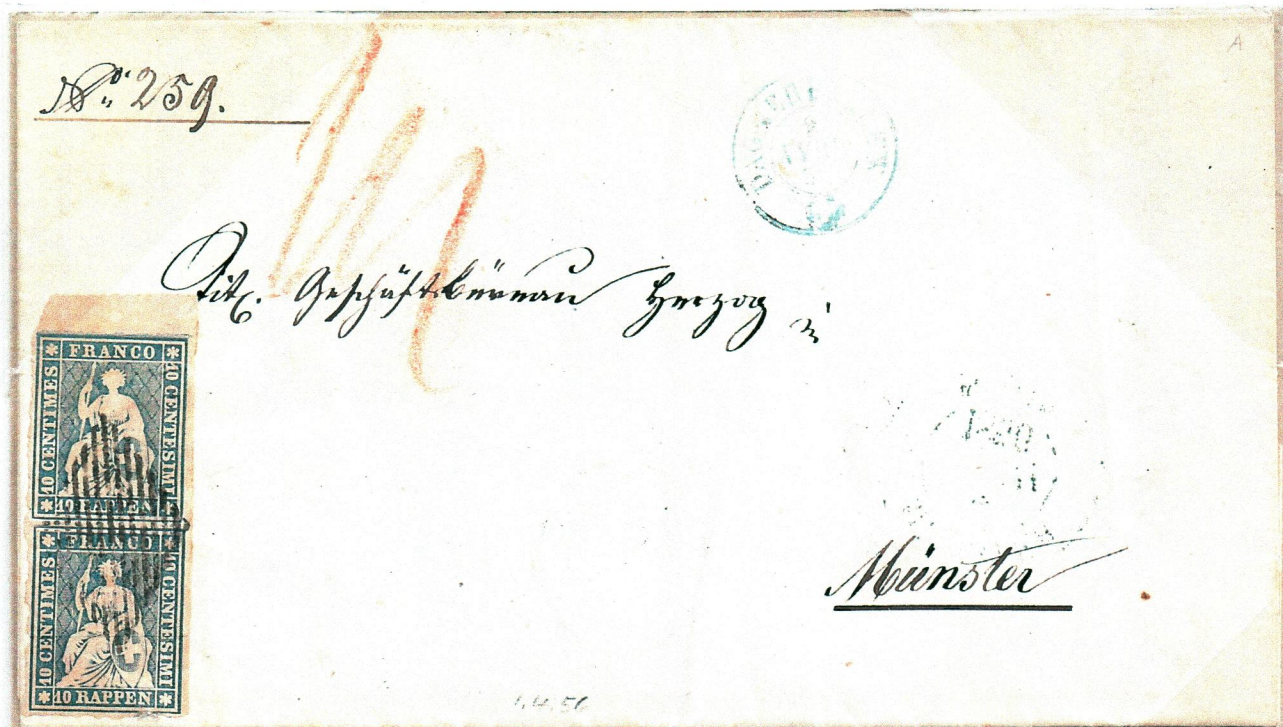 A
No. 259.
Tit. Geschäftsbüreau Herzog in
Münster
FRANCO
10 CENTIMES
10 CENTESIMI
10 RAPPEN
FRANCO
10 CENTIMES
10 CENTESIMI
10 RAPPEN